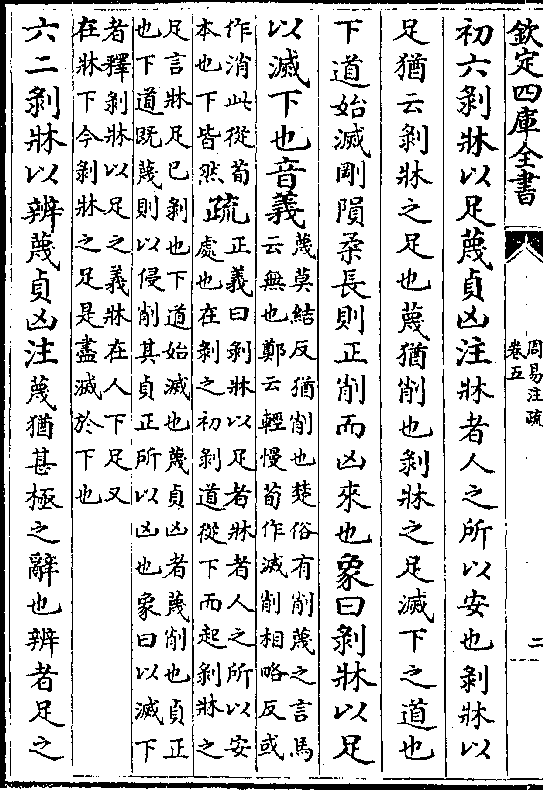 欽定四庫全書
周易注疏
卷五
二
初六剝牀以足蔑貞凶注牀者人之所以安也剝牀以
足猶云剝牀之足也蔑猶削也剝牀之足滅下之道也
下道始滅剛隕柔長則正削而凶來也象曰剝牀以足
以滅下也音義
蔑莫結反猶削也楚俗有削蔑之言馬
云無也鄭云輕慢荀作滅削相略反或
作消此從荀
本也下皆然
疏
正義曰剝牀以足者牀者人之所以安
處也在剝之初剝道從下而起剝牀之
足言牀足已剝也下道始滅也蔑貞凶者蔑削也貞正
也下道既蔑則以侵削其貞正所以凶也象曰以滅下
者釋剝牀以足之義牀在人下足又
在牀下今剝牀之足是盡滅於下也
六二剝牀以辨蔑貞凶注蔑猶甚極之辭也辨者足之